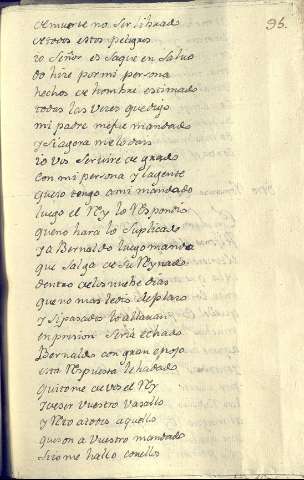 95.
de muerte no ser librado
de todos estos peligros
yo señor os saque en salvo
do hize por mi persona
hechos de hombre estimado
todas las vezes que dijo
mi padre me fue mandado
y si agora me lo dais
yo vos servire de grado
con mi persona y la gente
que io tengo a mi mandado
luego el Rey lo Respondio
que no hara lo suplicado
y a Bernaldo luego manda
que salga de su Reynado
dentro de los nuebe dias
que no mas le dio de plazo
y si pasados lo allauan
en prision seria echado
Bernaldo con gran enojo
esta Respuesta le ha dado
quitome de vos el Rey
de ser vuestro vasallo
y Reto a todos aquellos
que son a vuestro mandado
si yo me hallo con ellos